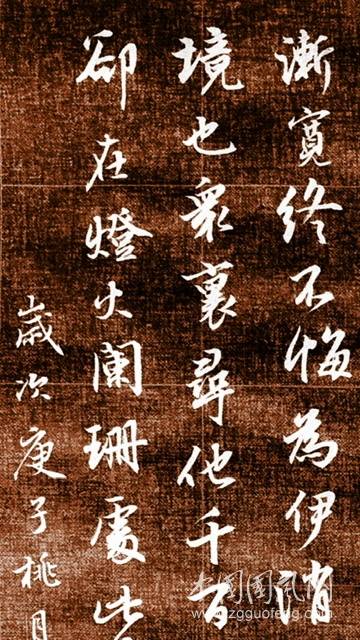 漸寬終不悔為伊消
境也眾裏尋他千百
卻在燈火闌珊處此
歲次庚子桃月
中国国风网
www.zgguofeng.com